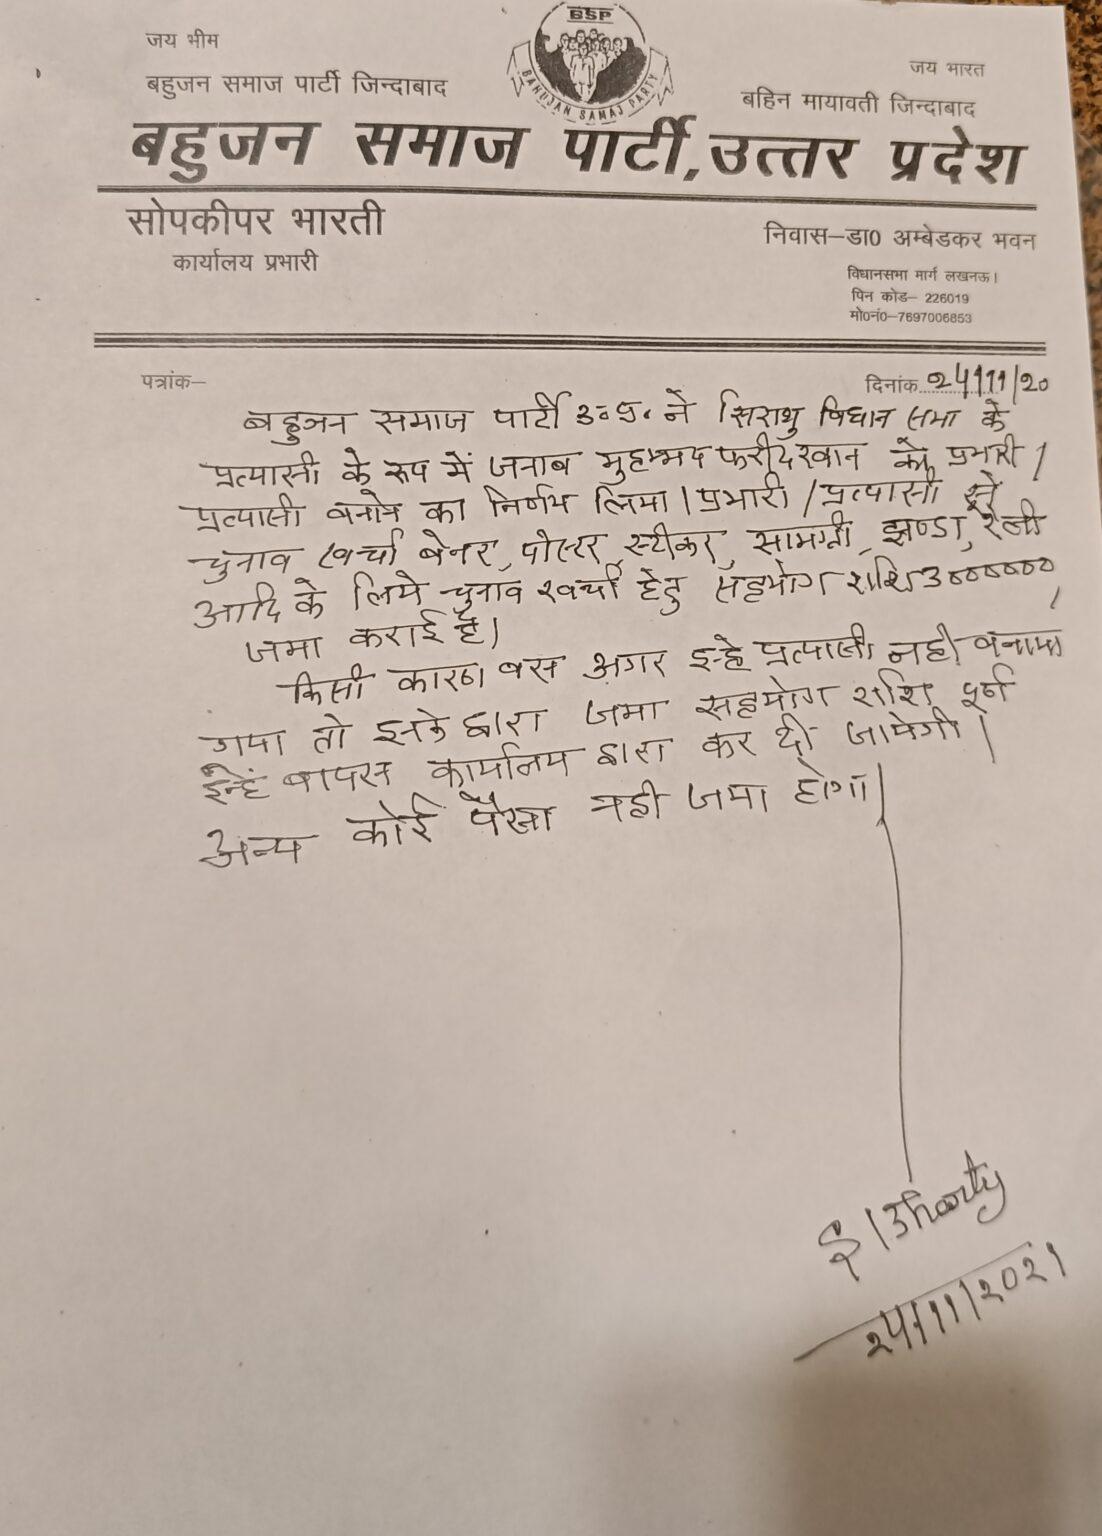 BSP
BAHUJAN SAMAJ PARTY
जय भीम
जय भारत
बहुजन समाज पार्टी जिन्दाबाद
बहिन मायावती जिन्दाबाद
बहुजन समाज पार्टी, उत्तर प्रदेश
सोपकीपर भारती
निवास–डा0 अम्बेडकर भवन
कार्यालय प्रभारी
विधानसभा मार्ग लखनऊ।
पिन कोड– 226019
मो0नं0–7697006853
पत्रांक–
दिनांक 24/11/20
बहुजन समाज पार्टी उ०प्र० ने सिराथु विधान सभा के
प्रत्यासी के रूप में जनाब मुहम्मद फरीद खान को प्रभारी/
प्रत्यासी बनाने का निर्णय लिया। प्रभारी/प्रत्यासी इन्हे
चुनाव खर्चा बेनर, पोस्टर, स्टीकर, सामग्री, झण्डा, रैली
आदि के लिये चुनाव खर्चा हेतु सहयोग राशि 3000000/
जमा कराई है।
किसी कारण वस अगर इन्हे प्रत्यासी नही बनाया
गया तो इनके द्वारा जमा सहयोग राशि पूर्ण
इन्हें वापस कार्यालय द्वारा कर दी जायेगी।
अन्य कोई पैसा नही जमा होगा।
S Bharty
24/11/2021